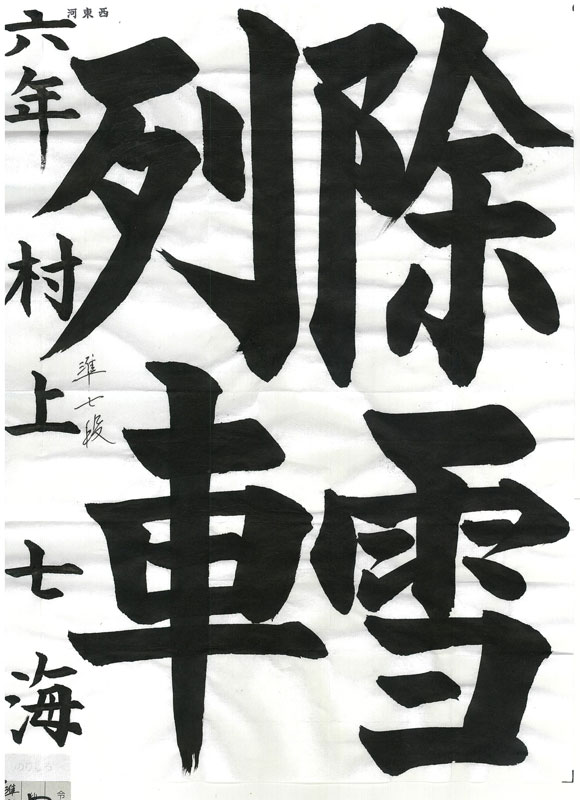 除雪
列車
西東河
準七段
六年 村上 七海